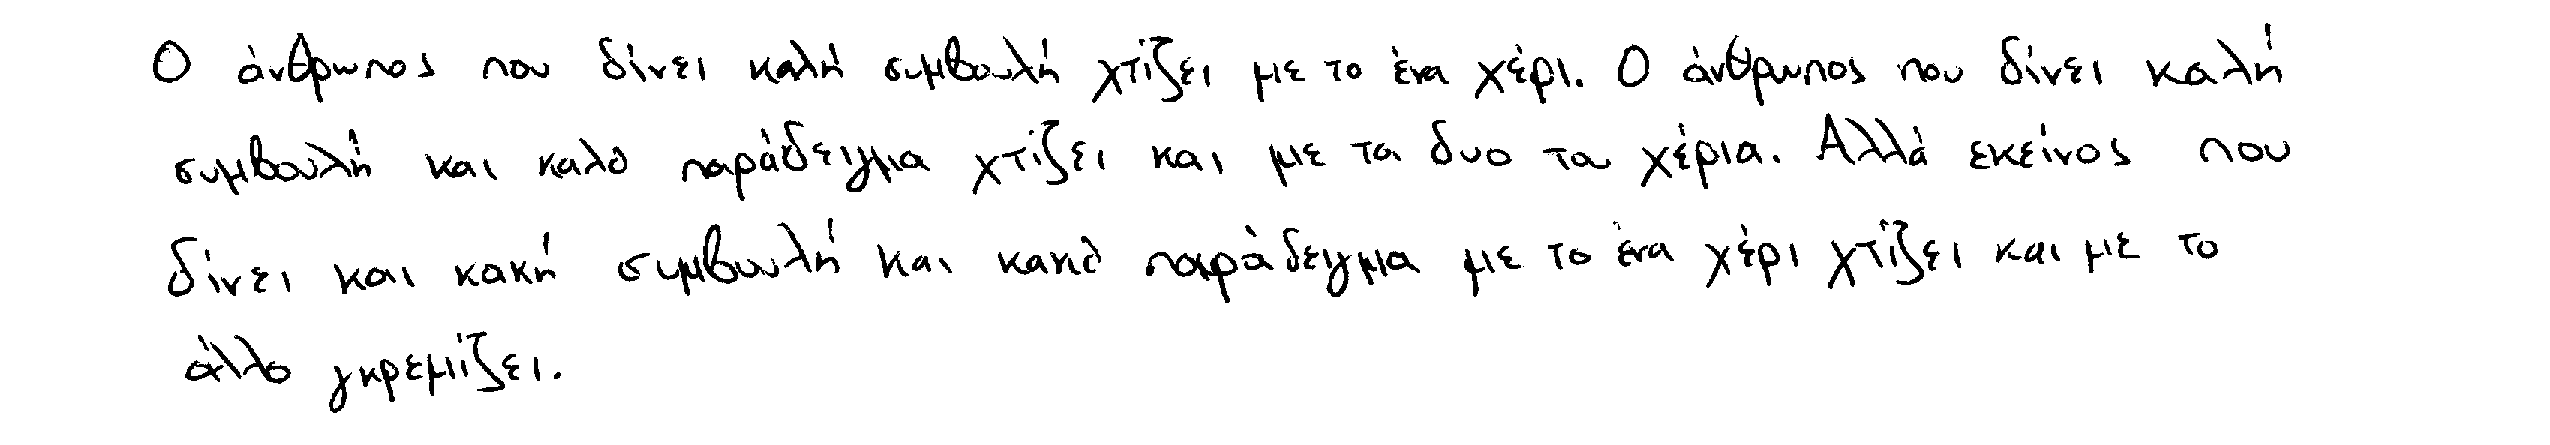 Ο άνθρωπος που δίνει καλή συμβουλή χτίζει με το ένα χέρι. Ο άνθρωπος που δίνει καλή
συμβουλή και καλό παράδειγμα χτίζει και με τα δυο τα χέρια. Αλλά εκείνος που
δίνει και κακή συμβουλή και κακό παράδειγμα με το ένα χέρι χτίζει και με το
άλλο γκρεμίζει.